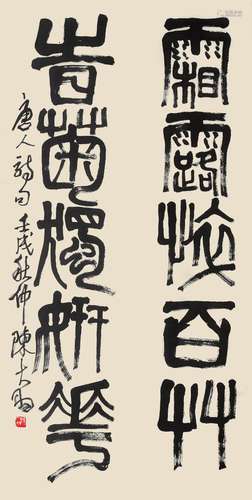 霜露悴百艸
旹菊獨妍華
唐人詩句 壬戌秋仲 陳大羽